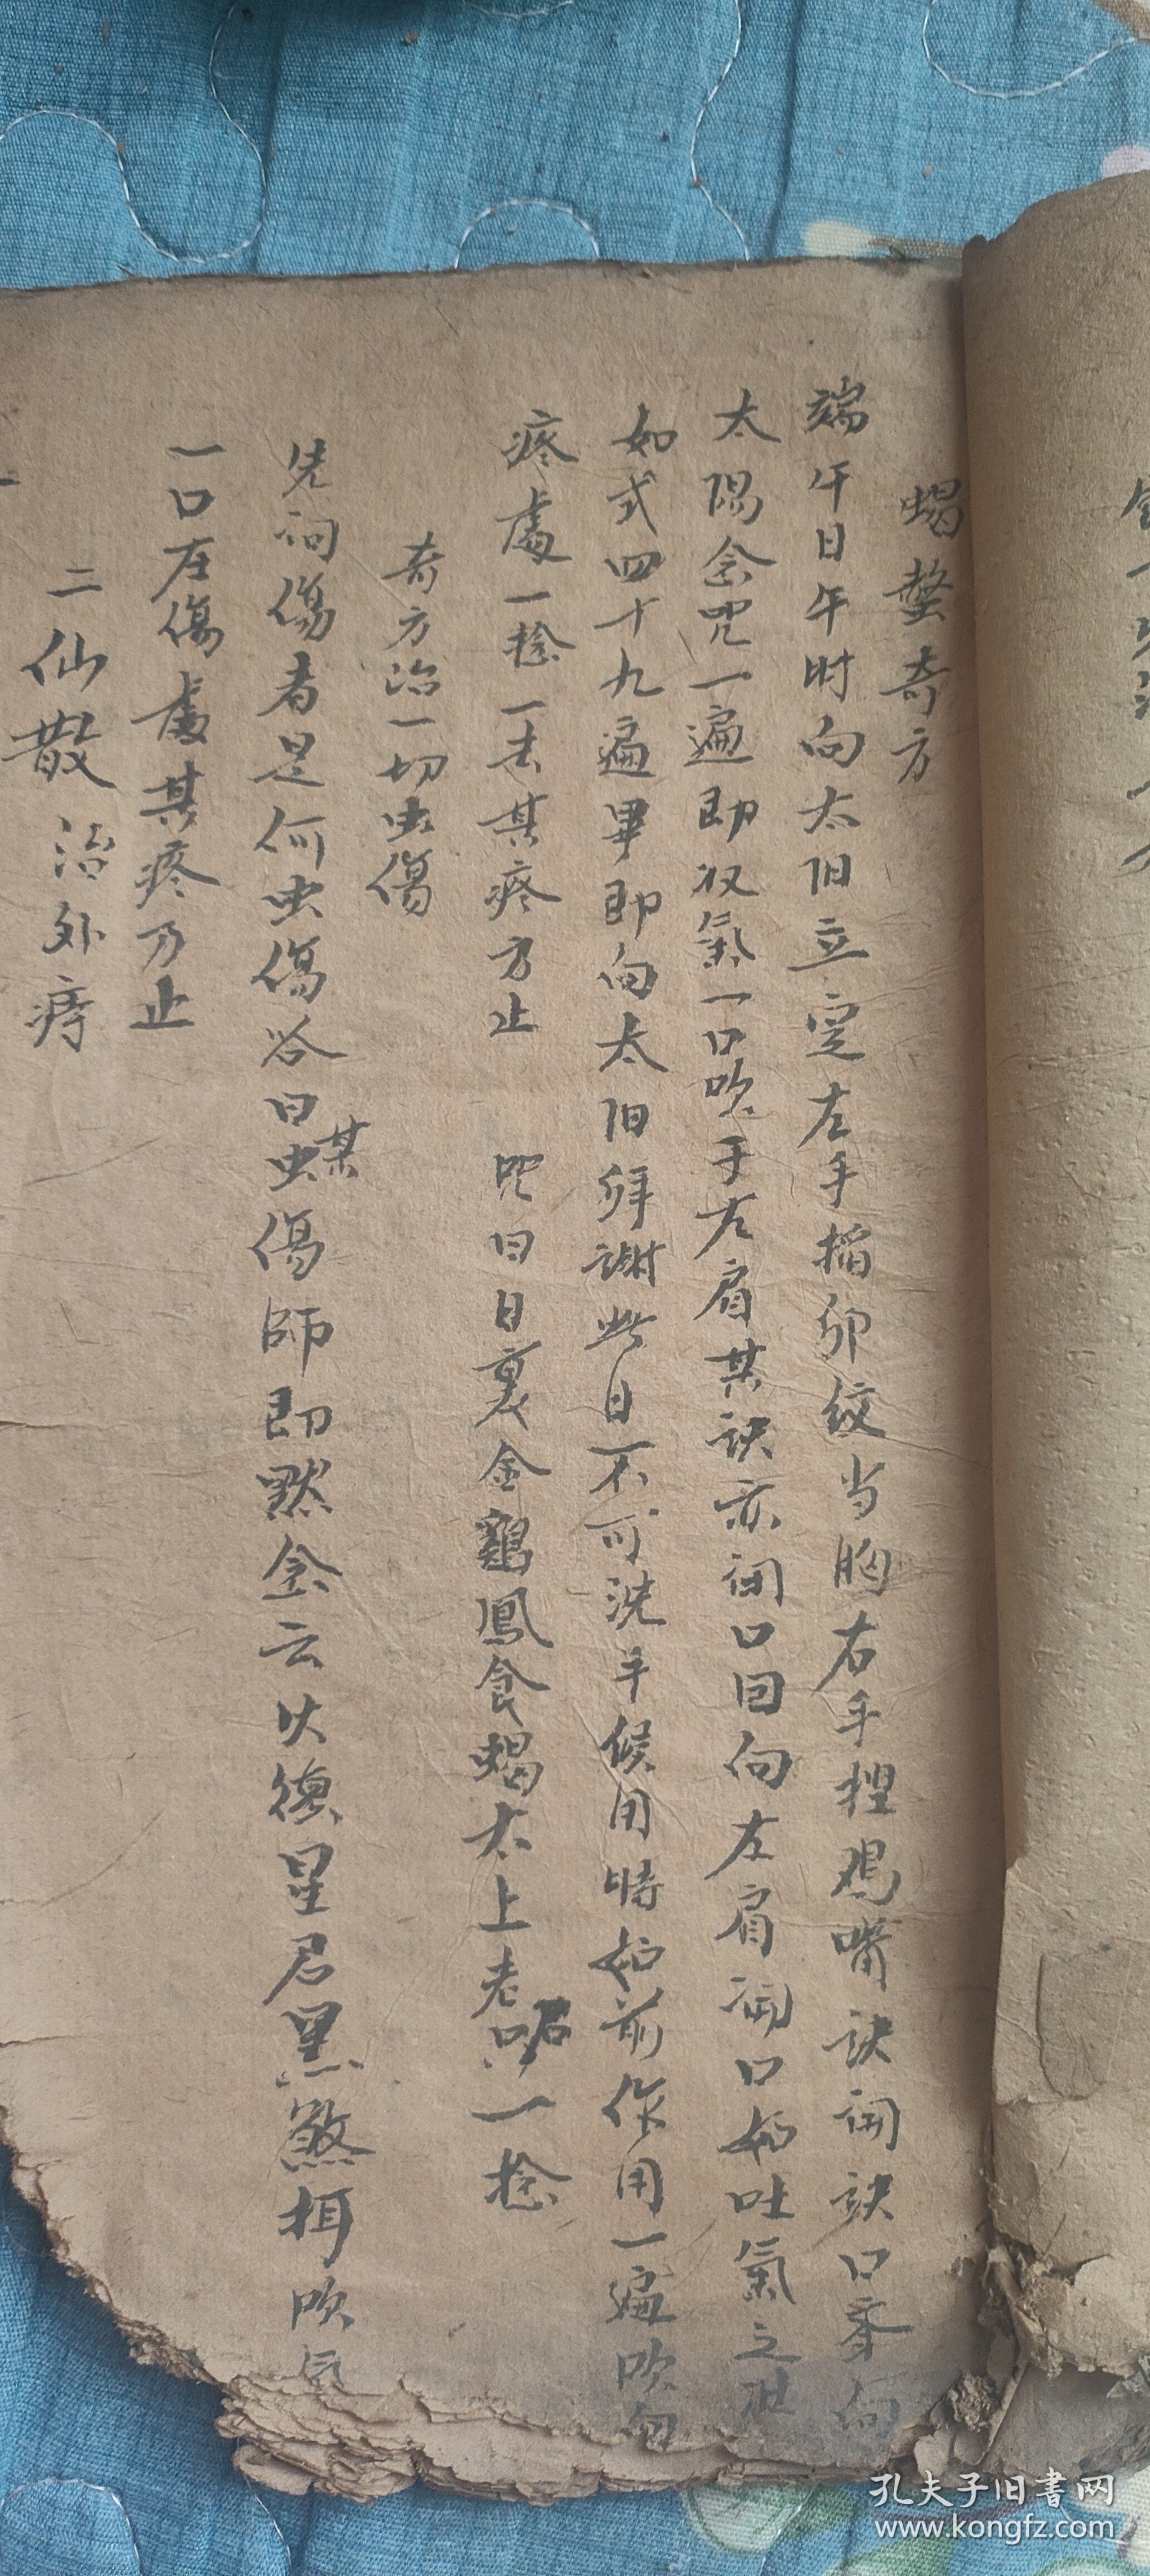 蝎螫奇方
端午日午时向太阳立定左手搯卯纹当胸右手揑鸡嘴诀闭诀口齐向
太阳念咒一遍即收氣一口吹于左肩其诀亦闭口回向左肩闭口如吐氣之状
如式四十九遍畢即向太阳拜謝此日不可洗手候用時如前作用一遍吹向
疼處一捻一去其疼方止 咒曰日裏金鷄鳳食蝎太上老君一捻
奇方治一切虫傷
先问傷者是何虫傷答曰某虫傷師即黙念云火德星君黑煞
吹气
一口在傷處其疼乃止
二仙散治外痔
孔夫子旧書网
www.kongfz.com